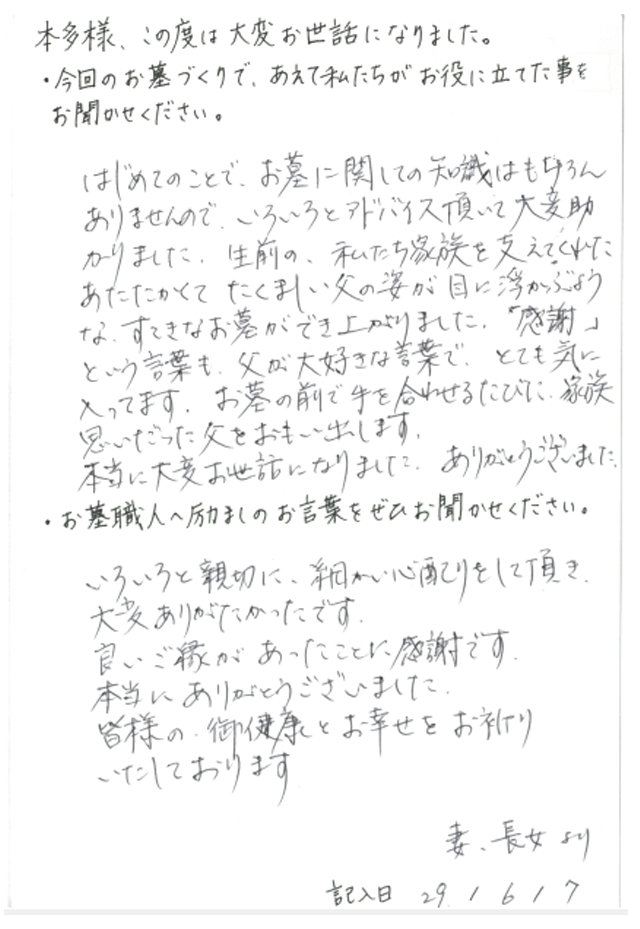 本多様、この度は大変お世話になりました。
・今回のお墓づくりで、あえて私たちがお役に立てた事を
お聞かせください。
はじめてのことで、お墓に関しての知識はもちろん
ありませんので、いろいろとアドバイス頂いて大変助
かりました。生前の、私たち家族を支えてくれた
あたたかくて たくましい父の姿が目に浮かぶよう
な、すてきなお墓ができ上がりました。「感謝」
という言葉も、父が大好きな言葉で、とても気に
入ってます。お墓の前で手を合わせるたびに、家族
思いだった父をおもい出します。
本当に大変お世話になりました。ありがとうございました。
・お墓職人へ励ましのお言葉をぜひお聞かせください。
いろいろと親切に、細かい心配りをして頂き、
大変ありがたかったです。
良いご縁があったことに感謝です。
本当にありがとうございました。
皆様の、御健康とお幸せをお祈り
いたしております
妻、長女より
記入日 29.16.17